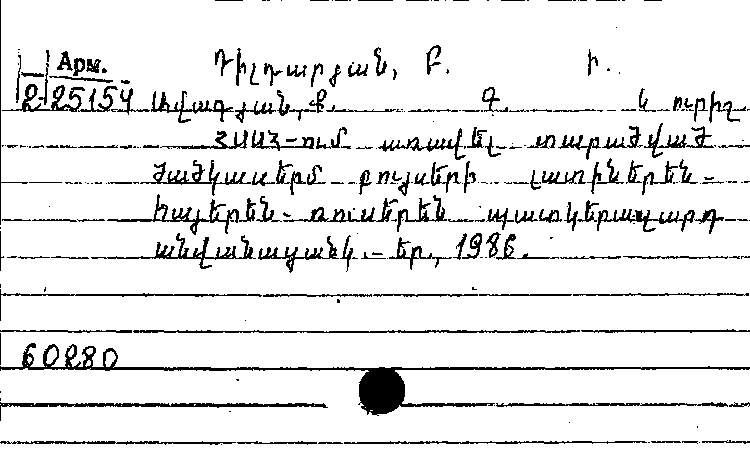 Арм.
2-25154
Դիլդարյան, Բ. Ի.
Ավագյան, Ք. Գ. և ուրիշ
ՀՍՍՀ-ում առավել տարածված
ծածկասերմ բույսերի լատիներեն-
հայերեն-ռուսերեն պատկերազարդ
անվանացանկ.-Եր., 1986.
60280